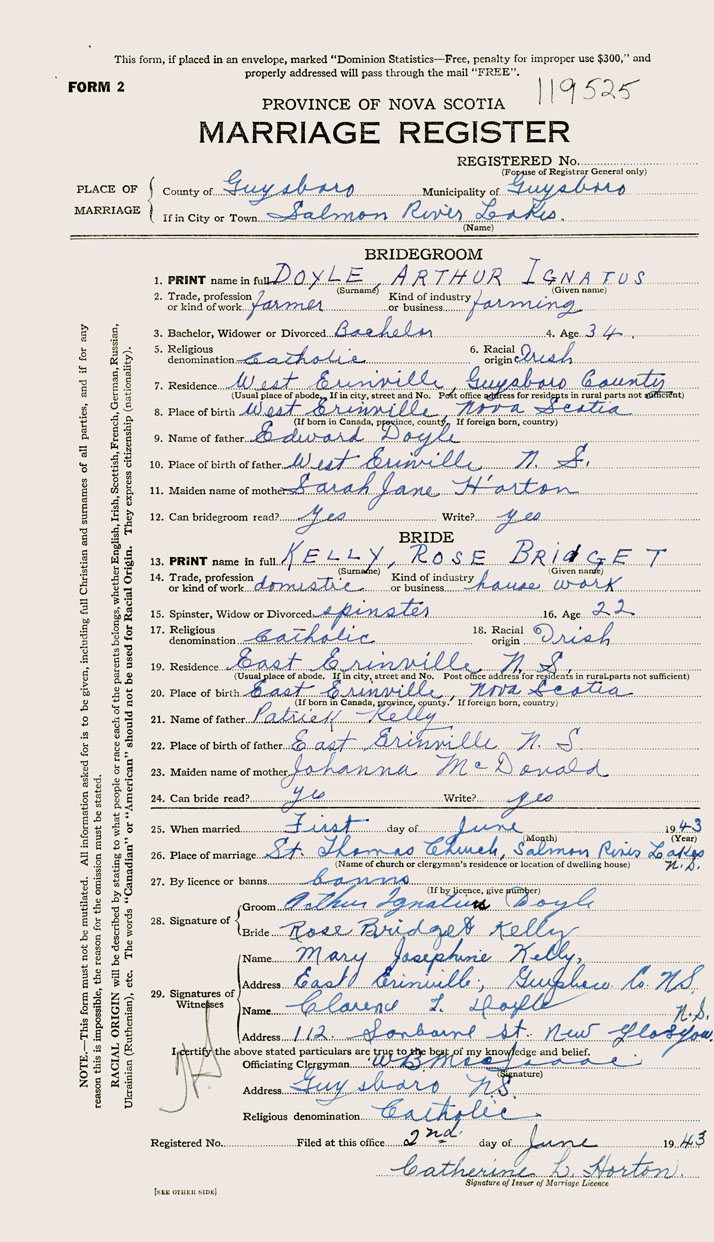 This form, if placed in an envelope, marked "Dominion Statistics—Free, penalty for improper use $300," and
properly addressed will pass through the mail "FREE".
FORM 2
119525
PROVINCE OF NOVA SCOTIA
MARRIAGE REGISTER
REGISTERED No.
(For use of Registrar General only)
PLACE OF MARRIAGE
County of Guysboro Municipality of Guysboro
If in City or Town Salmon River Lakes.
(Name)
BRIDEGROOM
1. PRINT name in full DOYLE, ARTHUR IGNATUS
(Surname) (Given name)
2. Trade, profession or kind of work farmer Kind of industry or business farming
3. Bachelor, Widower or Divorced Bachelor 4. Age 34.
5. Religious denomination Catholic 6. Racial origin Irish
7. Residence West Erinville, Guysboro County
(Usual place of abode. If in city, street and No. Post office address for residents in rural parts not sufficient)
8. Place of birth West Erinville, Nova Scotia
(If born in Canada, province, county. If foreign born, country)
9. Name of father Edward Doyle
10. Place of birth of father West Erinville N. S.
11. Maiden name of mother Sarah Jane Horton
12. Can bridegroom read? yes Write? yes
BRIDE
13. PRINT name in full KELLY, ROSE BRIdGET
(Surname) (Given name)
14. Trade, profession or kind of work domestic Kind of industry or business house work
15. Spinster, Widow or Divorced spinster 16. Age 22
17. Religious denomination Catholic 18. Racial origin Irish
19. Residence East Erinville, N. S.
(Usual place of abode. If in city, street and No. Post office address for residents in rural parts not sufficient)
20. Place of birth East Erinville, Nova Scotia
(If born in Canada, province, county. If foreign born, country)
21. Name of father Patrick Kelly
22. Place of birth of father East Erinville N. S
23. Maiden name of mother Johanna McDonald
24. Can bride read? yes Write? yes
25. When married First day of June 1943
(Month) (Year)
26. Place of marriage St. Thomas Church, Salmon River Lakes N.S.
(Name of church or clergyman's residence or location of dwelling house)
27. By licence or banns banns
(If by licence, give number)
28. Signature of
Groom Arthur Ignatius Doyle
Bride Rose Bridget Kelly
29. Signatures of Witnesses
Name Mary Josephine Kelly,
Address East Erinville, Guysboro Co. NS.
Name Clarence L. Doyle
Address 112 Sanborne St. New Glasgow. N.S.
I certify the above stated particulars are true to the best of my knowledge and belief.
Officiating Clergyman W B MacIsaac
(Signature)
Address Guysboro N.S.
Religious denomination Catholic
Registered No. Filed at this office 2nd. day of June 1943
Catherine L. Horton.
Signature of Issuer of Marriage Licence
[SEE OTHER SIDE]
NOTE.—This form must not be mutilated. All information asked for is to be given, including full Christian and surnames of all parties, and if for any
reason this is impossible, the reason for the omission must be stated.
RACIAL ORIGIN will be described by stating to what people or race each of the parents belongs, whether English, Irish, Scottish, French, German, Russian,
Ukrainian (Ruthenian), etc. The words "Canadian" or "American" should not be used for Racial Origin. They express citizenship (nationality).